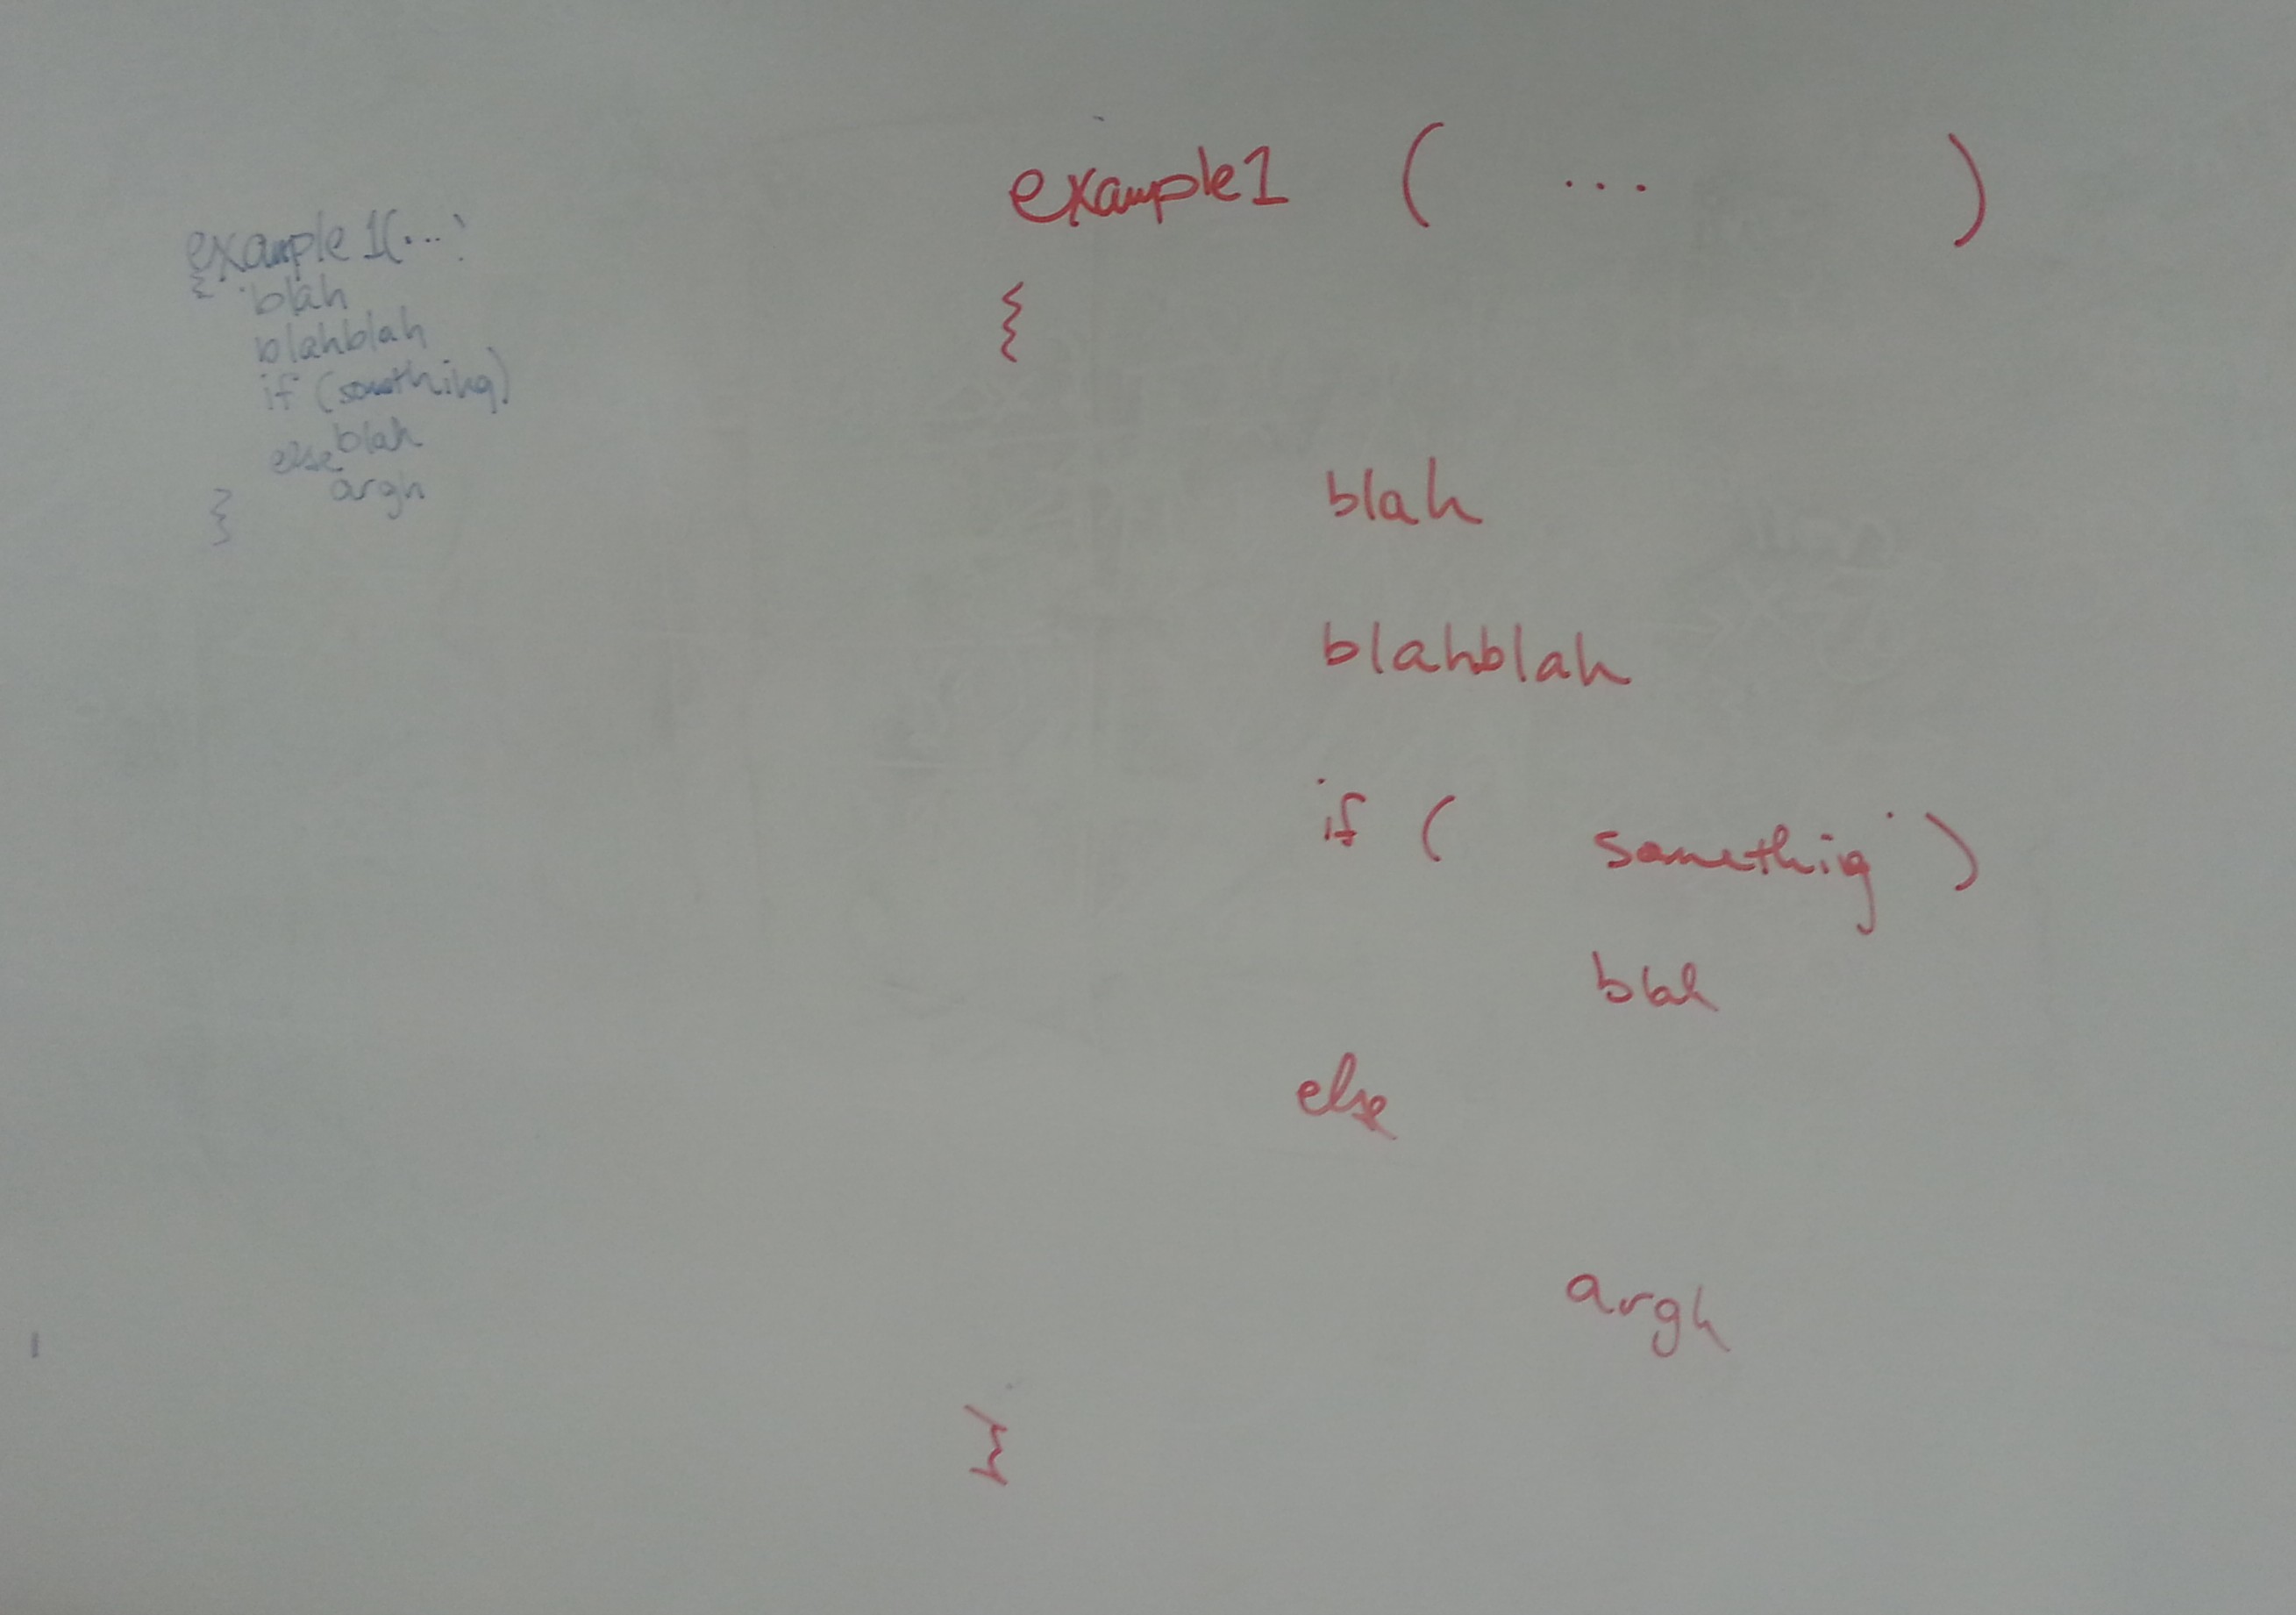 example 1(...)
{ blah
blahblah
if (something)
blah
else
argh
}
example1 ( ... )
{
blah
blahblah
if ( somethig )
blah
else
argh
}